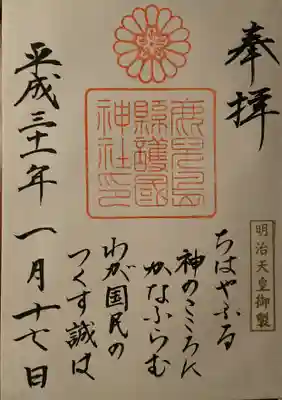 奉拝
鹿児島
縣護國
神社印
明治天皇御製
ちはやふる
神のこころに
かなふらむ
わが国民の
つくす誠は
平成三十一年一月十七日